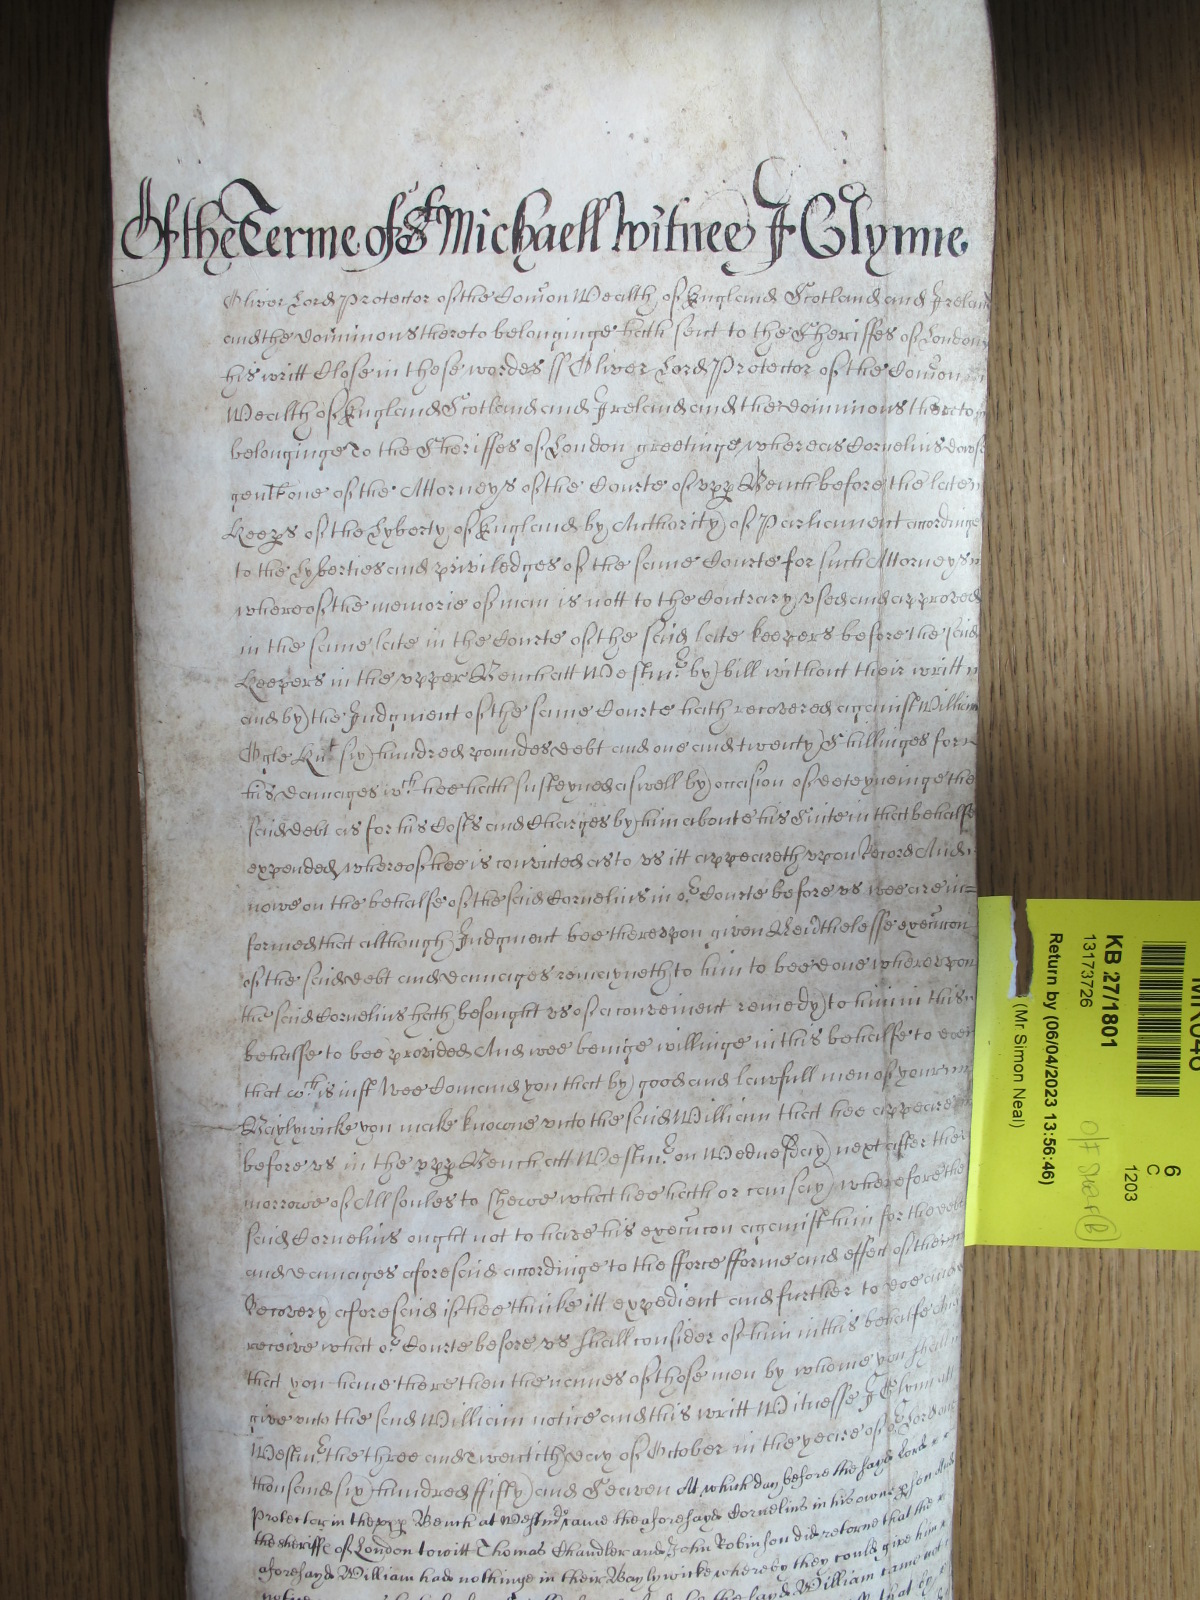 Of the Terme of St Michaell Witnes J Glynne
Oliver Lord Protector of the Comon Wealth of England Scotland and Ireland
and the dominions thereto belonginge hath sent to the Sheriffes of London
his writt Close in these wordes ss Oliver Lord Protector of the Comon
Wealth of England Scotland and Ireland and the dominions thereto
belonginge To the Sheriffes of London greetinge whereas Cornelius
gent one of the Attorneys of the Courte of upp Bench before the late
Keeps of the Lyberty of England by Authority of Parliament accordinge
to the Lyberties and priviledges of the same Courte for such Attorneys
whereof the memorie of man is nott to the Contrary used and approved
in the same late in the Courte of the said late keepers before the said
Keepers in the upper Bench att Westmr by bill without their writt
and by the Judgment of the same Courte hath recovered against William
Ogle Knt six hundred poundes debt and one and twenty Shillinges for
his damages wch hee hath susteyned aswell by occasion of deteyneinge the
said debt as for his Costs and Charges by him aboute his Suite in that behalfe
expended whereof hee is convicted as to us itt appeareth upon Record And
nowe on the behalfe of the said Cornelius in or Courte before us wee are in=
formed that although Judgment bee thereupon given Nevthelesse execucon
of the said debt and damages remayneth to him to bee done whereupon
the said Cornelius hath besought us of a convenient remedy to him in this
behalfe to bee provided And wee beinge willinge in this behalfe to doe
that wch is just Wee Comand you that by good and lawfull men of your
Baylywicke you make knowne unto the said William that hee appeare
before us in the upp Bench att Westmr on Wednesday next after the
morrowe of All soules to shewe what hee hath or can say wherefore the
said Cornelius ought not to have his execucon against him for the debt
and damages aforesaid accordinge to the fforce fforme and effect of the
Recovery aforesaid if hee thinke itt expedient and further to doe and
receive what or Courte before us shall consider of him in this behalfe And
that you have there then the names of those men by whome you shall
give unto the said William notice and this writt Witnesse J Glynn att
Westmr the three and twentith day of October in the yeare of or Lord one
thousand six hundred ffifty and Seaven At which day before the sayd Lord
Protector in the upp Bench at Westmr came the aforesayd Cornelius in his owne pson And
the sheriffe of London towitt Thomas Chandler and John Robinson did retorne that the
aforesayd William had nothinge in their Baylywicke whereby they could give him
notice the sayd William came not
that by
KB 27/1801
13173726
Return by (06/04/2023 13:56:46)
(Mr Simon Neal)
6
C
1203